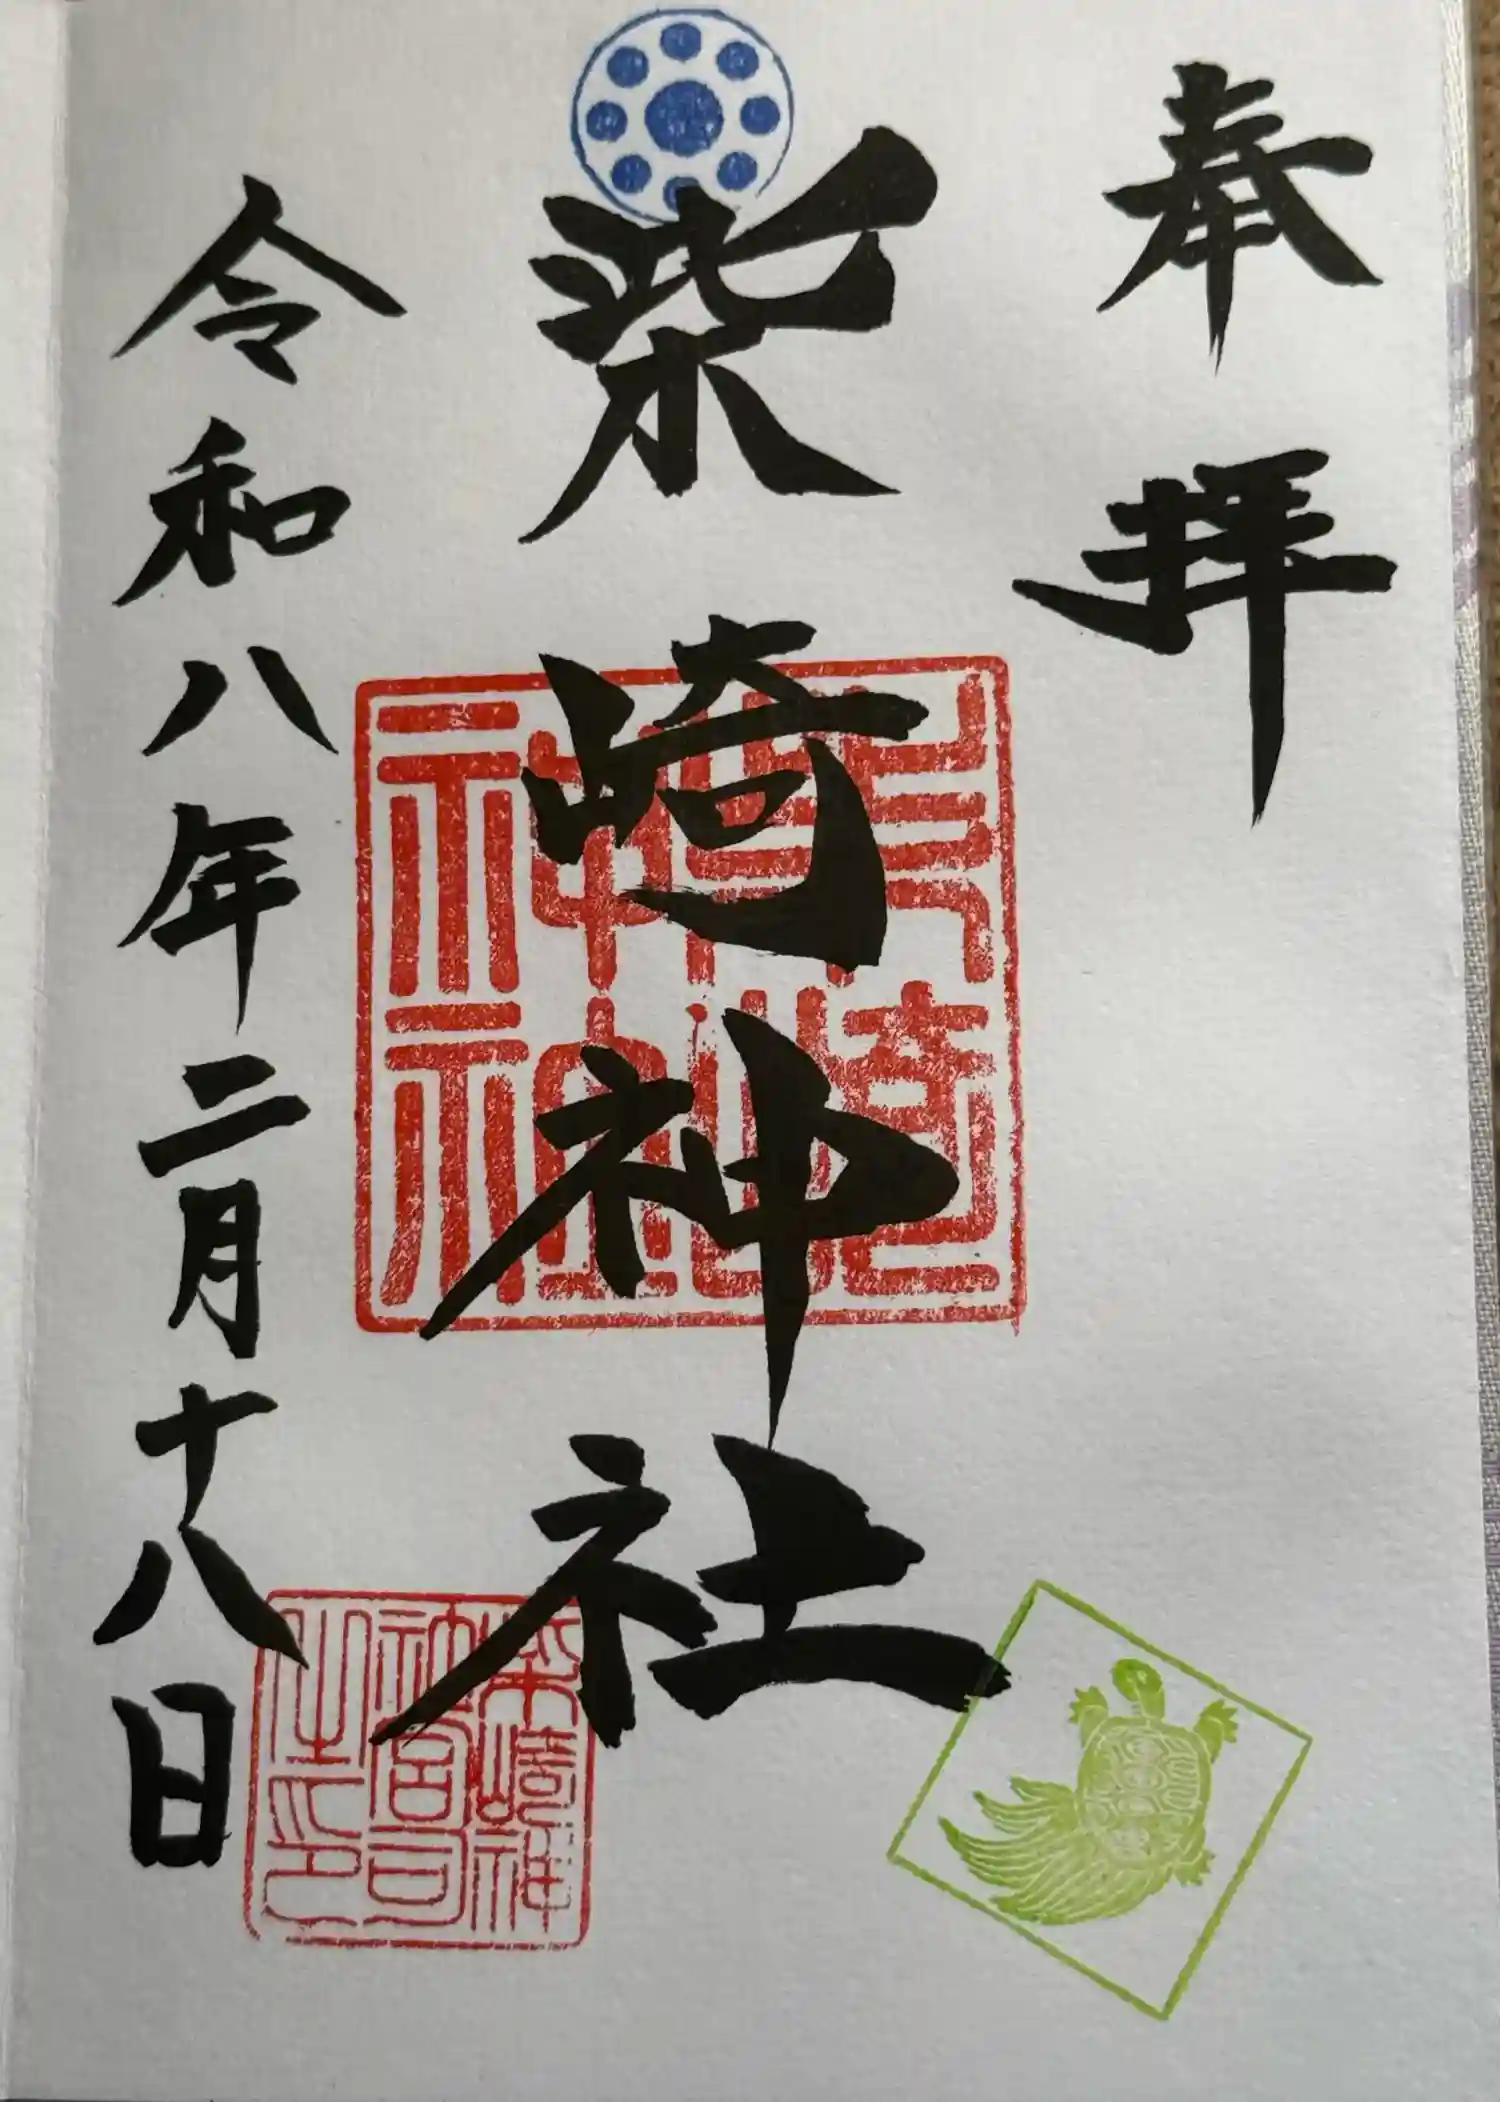 奉拝
柴崎神社
柴崎神社
柴崎神
社宮司
之印
令和八年二月十八日